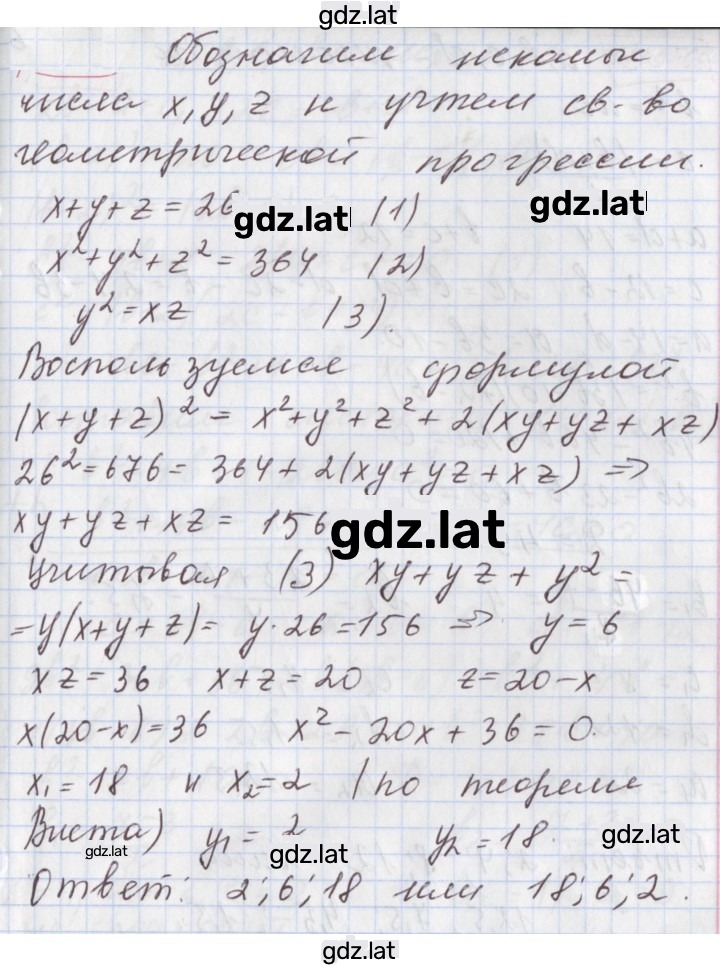 gdz.lat
Обозначим искомые
числа x, y, z и учтем св-во
геометрической прогрессии.
x+y+z = 26 gdz.lat (1) gdz.lat
x²+y²+z² = 364 (2)
y² = xz (3).
Воспользуемся формулой
(x+y+z)² = x²+y²+z²+2(xy+yz+xz)
26²=676= 364+2(xy+yz+xz) =>
xy+yz+xz = 156 gdz.lat
Учитывая (3) xy+yz+y² =
= y(x+y+z) = y·26 = 156 => y = 6
xz = 36 x+z = 20 z = 20-x
x(20-x) = 36 x² - 20x + 36 = 0.
x₁ = 18 и x₂ = 2 (по теореме
Виета) y₁ = 2 y₂ = 18. gdz.lat
gdz.lat gdz.lat
Ответ: 2; 6; 18 или 18; 6; 2.
gdz.lat